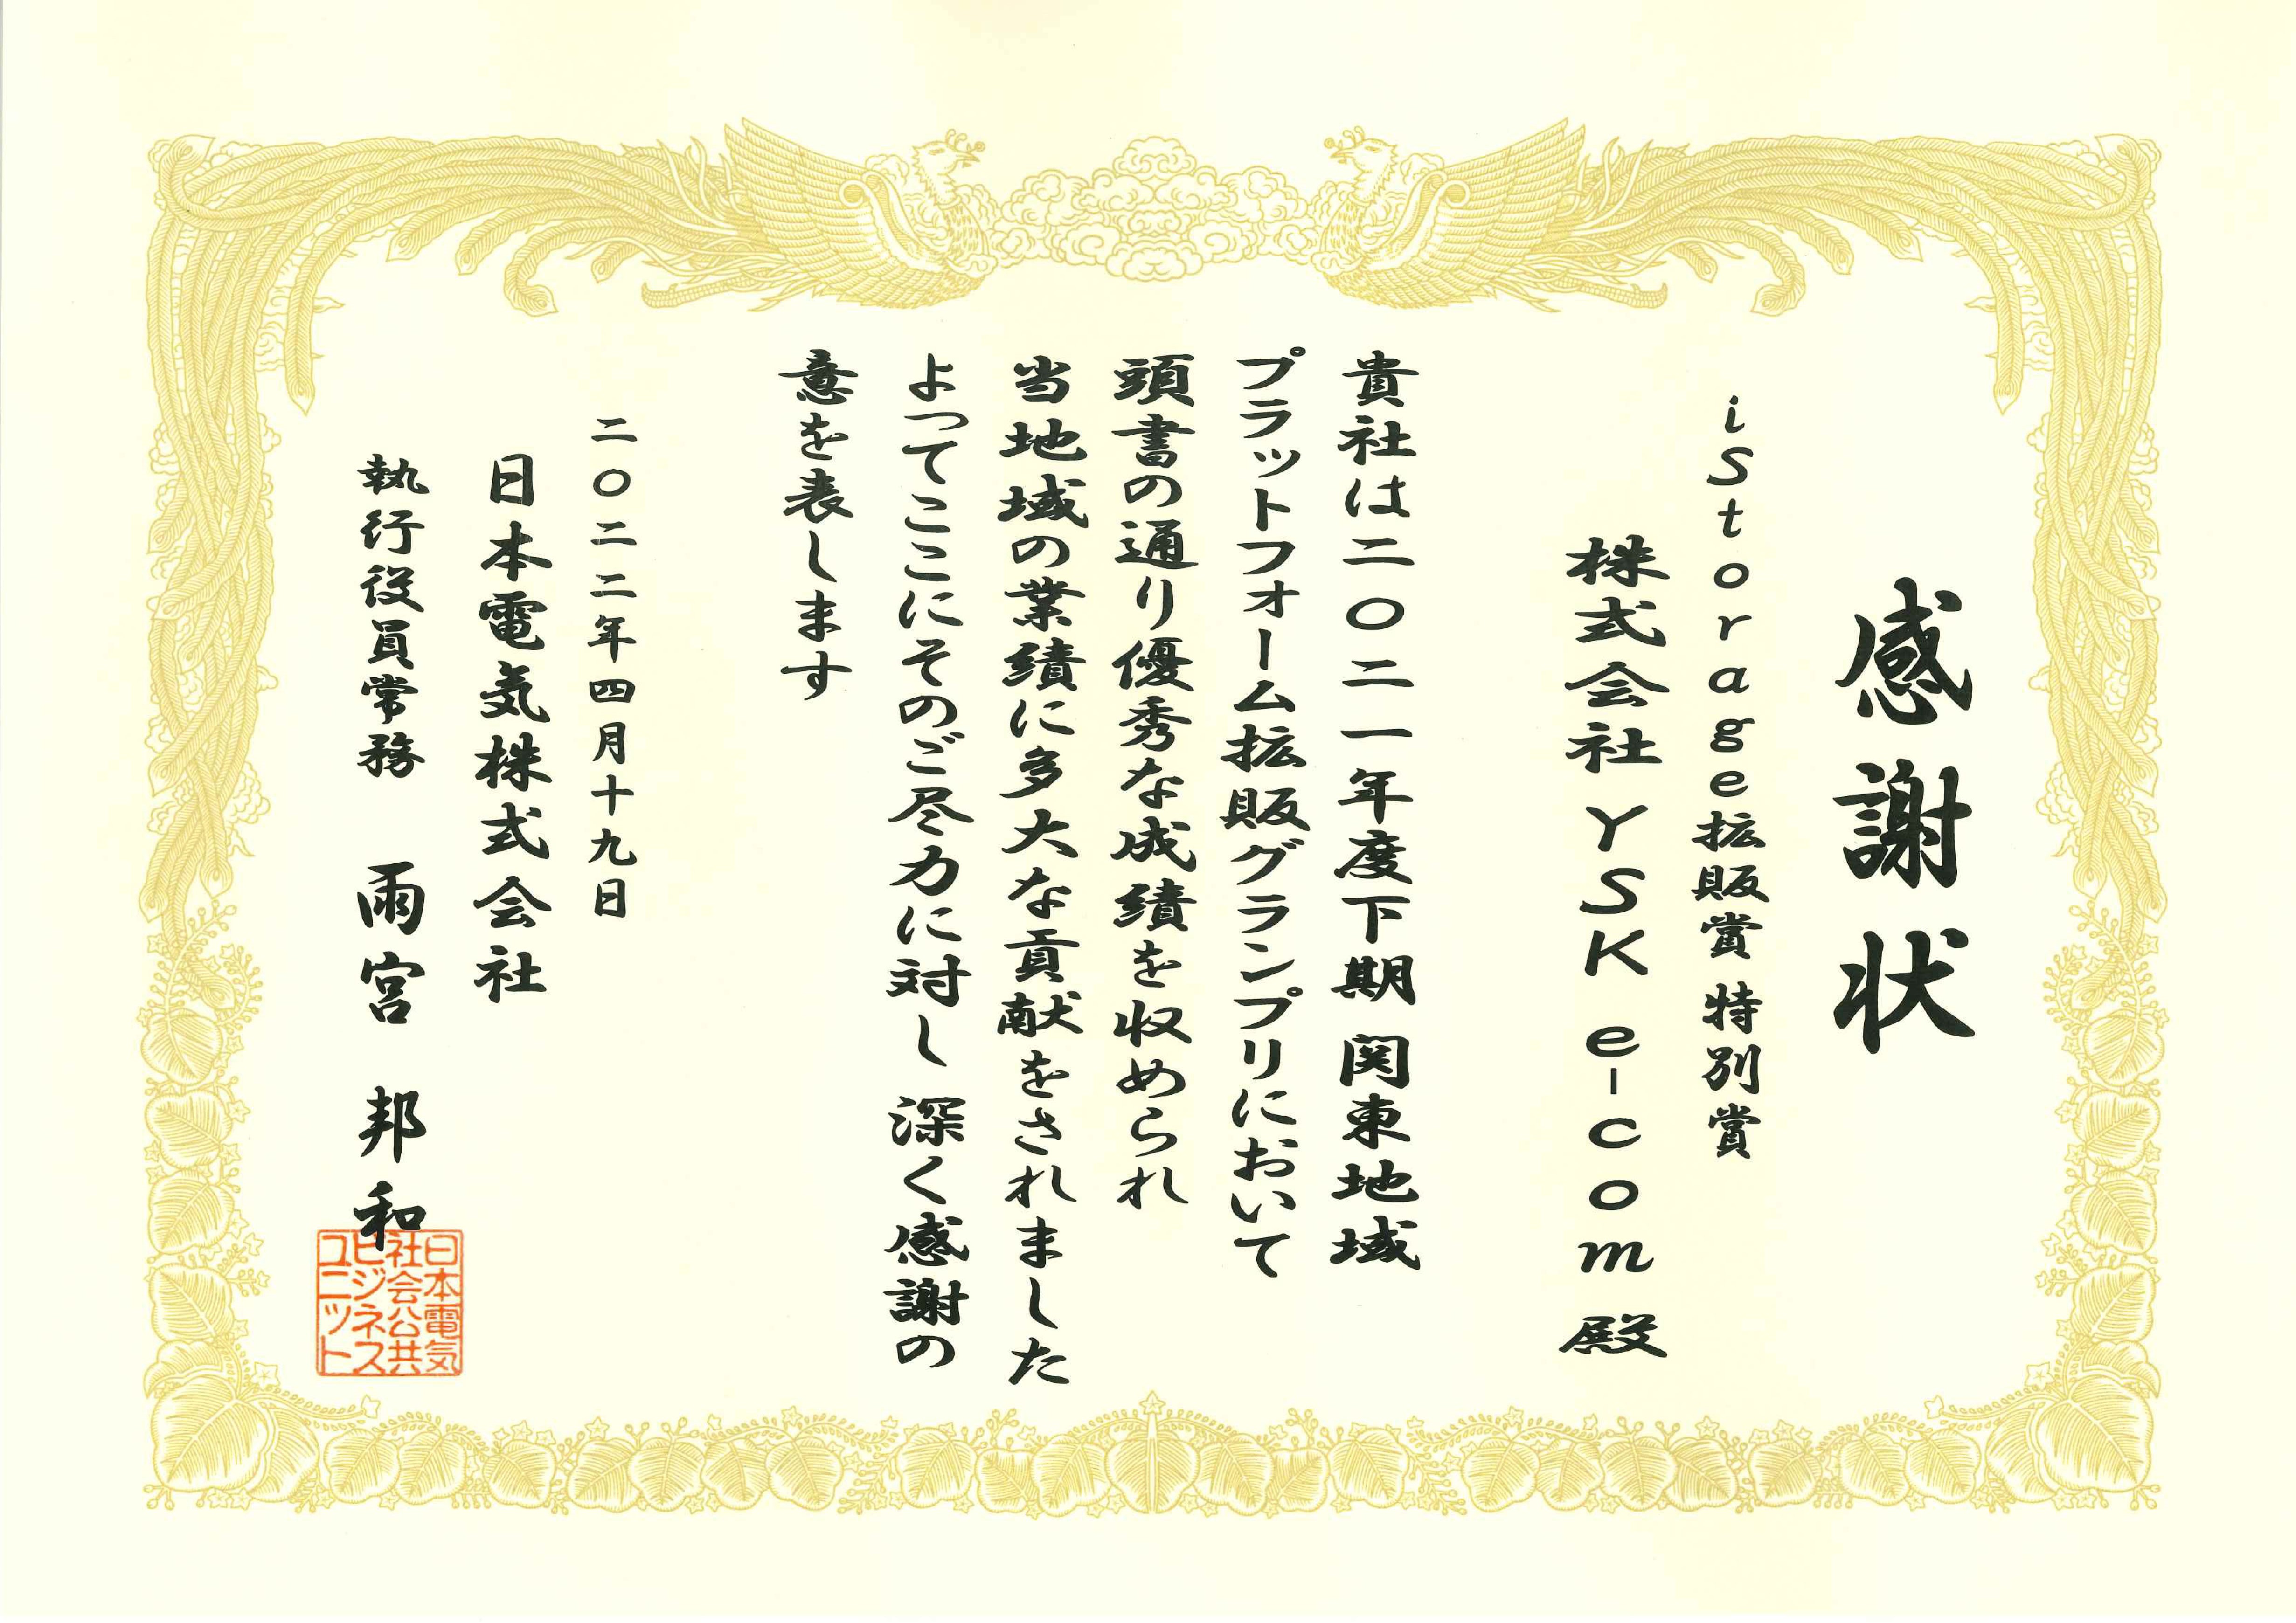 感謝状
iStorage拡販賞 特別賞
株式会社 YSK e-com 殿
貴社は二〇二一年度下期 関東地域
プラットフォーム拡販グランプリにおいて
頭書の通り優秀な成績を収められ
当地域の業績に多大な貢献をされました
よってここにそのご尽力に対し 深く感謝の
意を表します
二〇二二年四月十九日
日本電気株式会社
執行役員常務 雨宮 邦和
日本電気
社会公共
ビジネス
ユニット